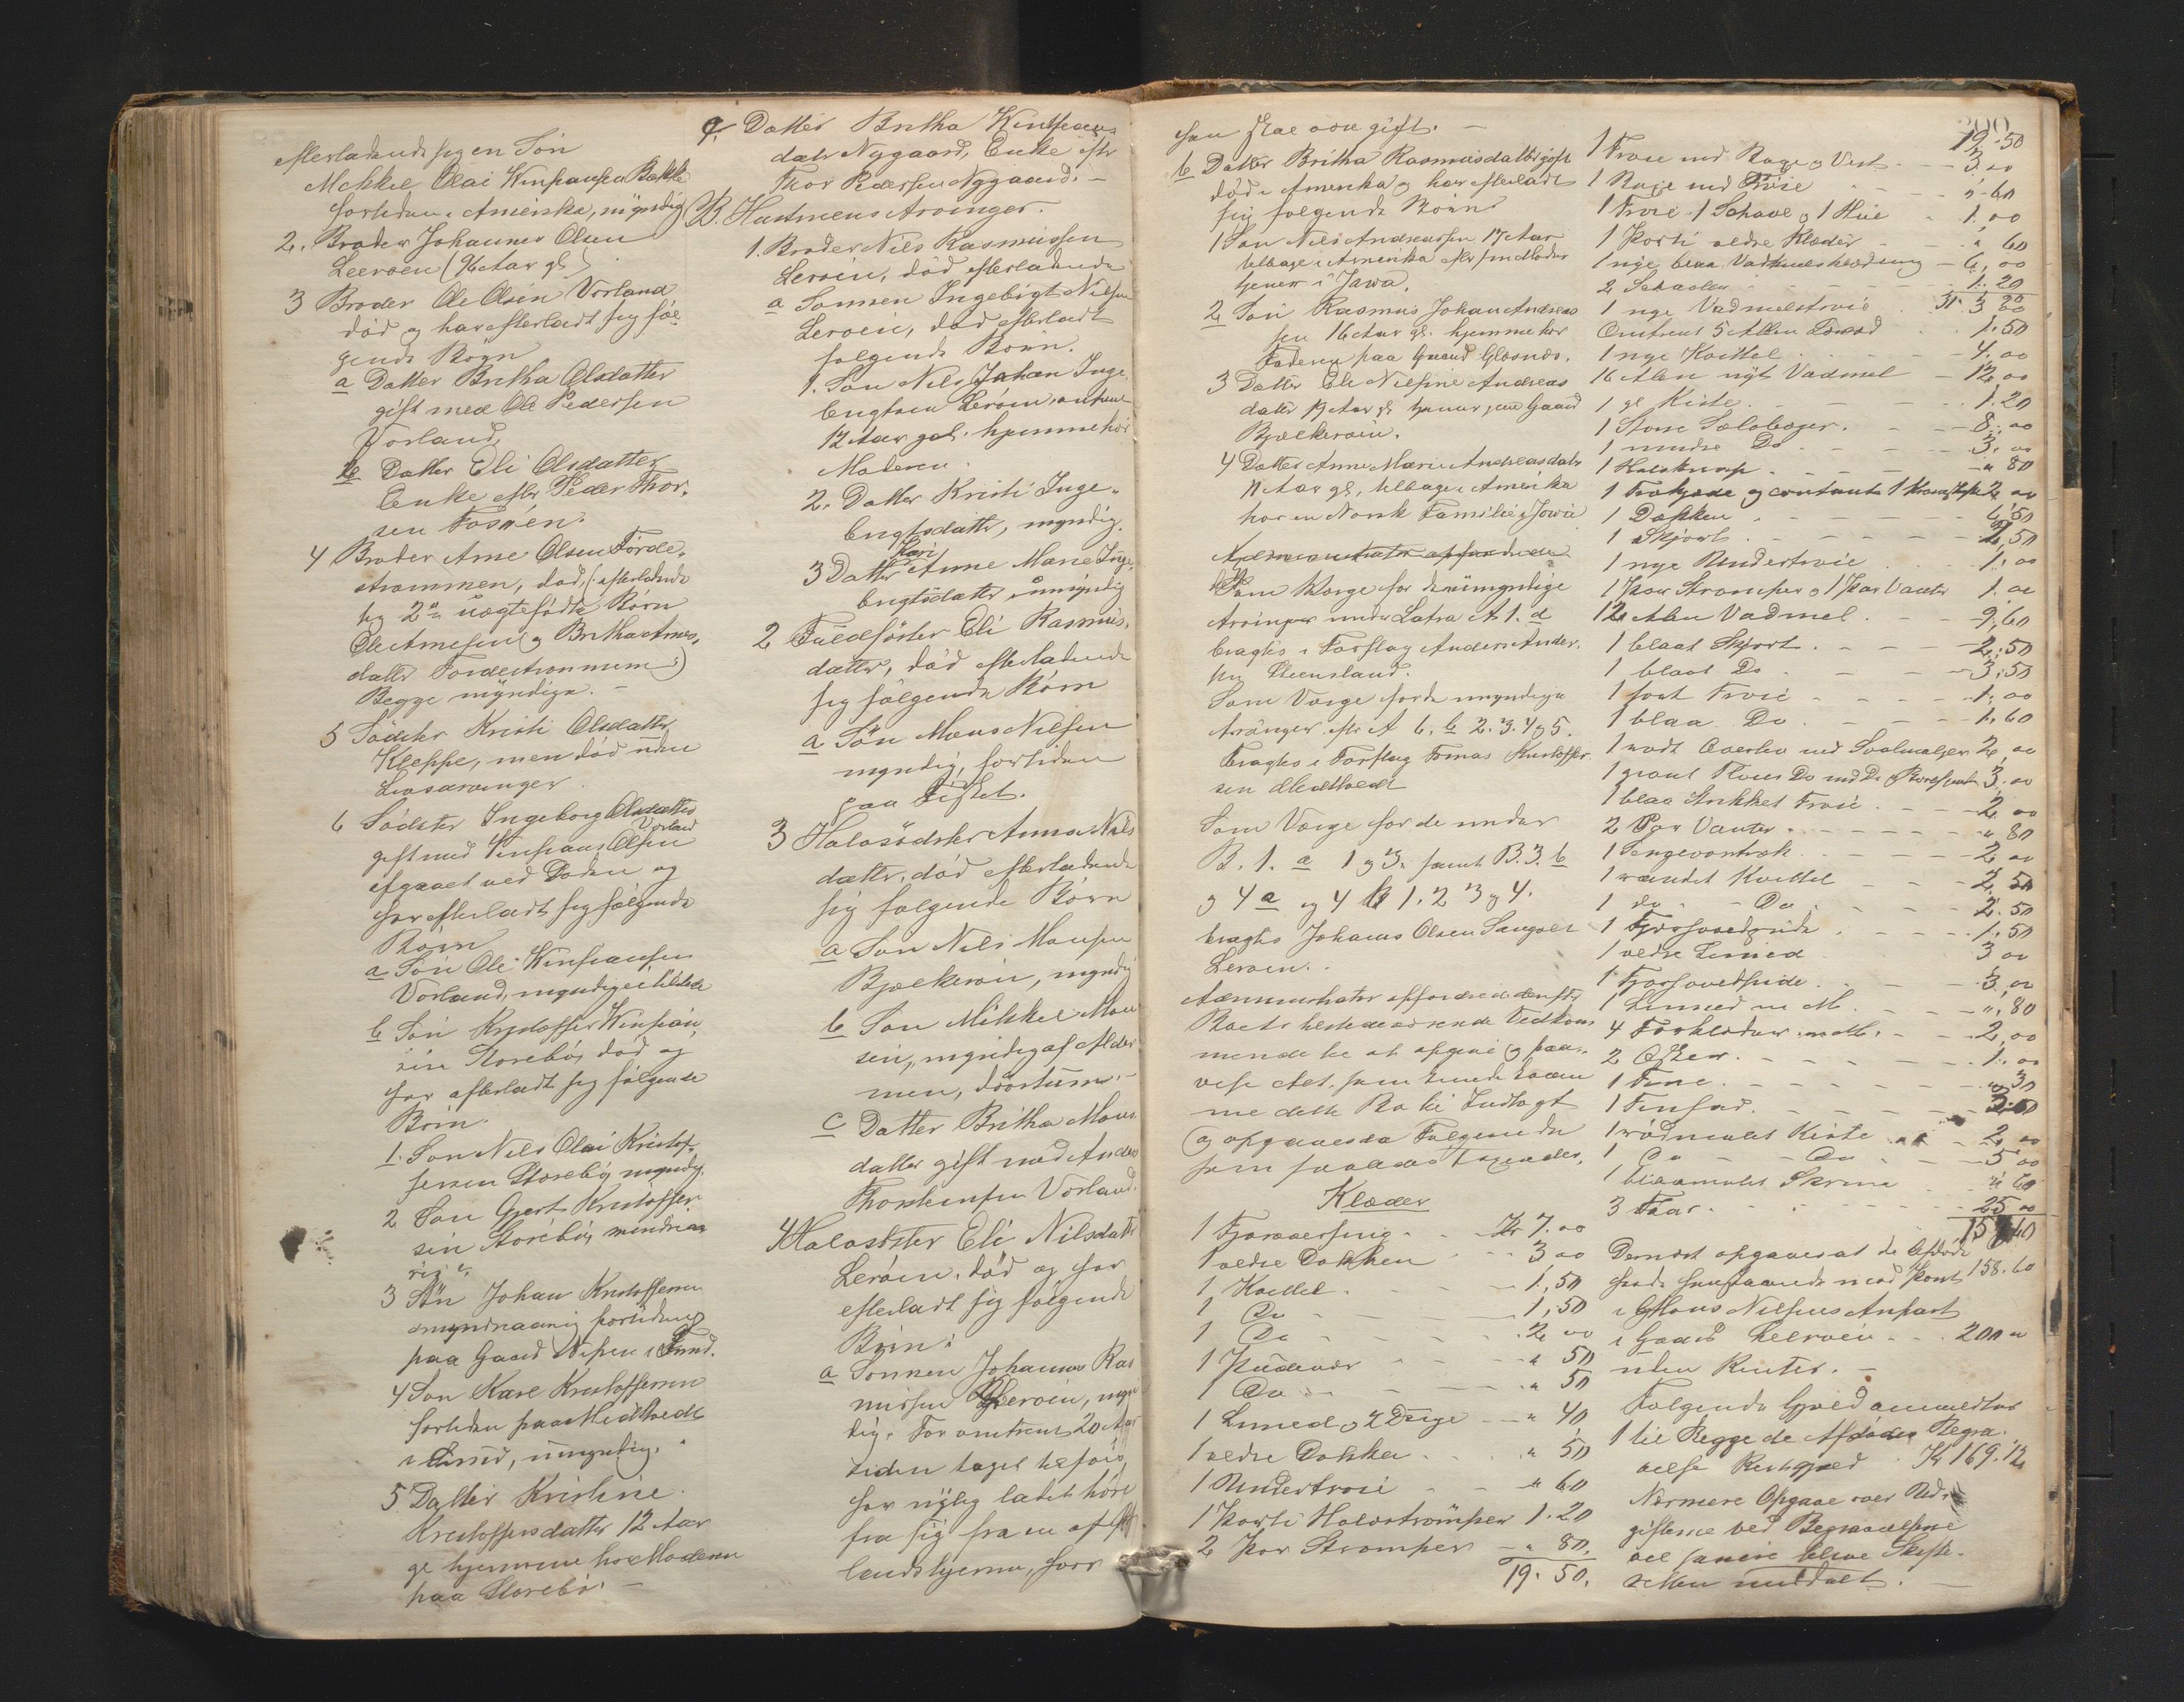 efterladende sig en Søn
Mekkel Olai Vinsiansen Bække
fortiden i Amerika, myndig
2. Broder Johannes Olsen
Leeroen (76 Aar gl)
3 Broder Ole Olsen Vorland
død og har efterladt sig føl
gende Børn
a Datter Britha Olsdatter
gift med Ole Pedersen
Vorland,
b Datter Eli Olsdatter
Enke efter Peder Thor-
sen Fosøen.
4 Broder Arne Olsen Førde-
strømmen, død, (efterladende
sig 2de uægtefødte Børn
Ole Arnesen og Britha Arnes-
datter Førdestrømmen)
Begge myndige. -
5 Sødster Kristi Olsdatter
Kleppe, men død uden
Livsarvinger
6 Sødster Ingeborg Olsdatter
Vorland
gift med Vinsians Olsen
afgaaet ved Døden og
har efterladt sig følgende
Børn
a Søn Ole Vinsiansen
Vorland, myndig
b Søn Kristoffer Vinsian
sen Storebø, død og
har efterladt sig følgende
Børn.
1. Søn Nils Olai Kristof-
fersen Storebø, myndig.
2 Søn Gjert Kristoffer
sen Storebø, mindreaa
rig.
3 Søn Johan Kristoffersen
mindreaarig fortiden
paa Gaard i Sund.
4 Søn Karl Kristoffersen
fortiden paa Midtvedt
i Sund, umyndig.
5 Datter Kristine
Kristoffersdatter 12 Aar
gl hjemme hos Moderen
paa Storebø. -
c. Datter Britha Vinsians
datr Nygaard, Enke eftr
Thor Pedersen Nygaard. -
B. Hustruens Arvinger.
1. Broder Nils Rasmussen
Lerøen, død efterladende
a Sønnen Ingebrigt Nilsen
Lerøen, død efterladt
følgende Børn.
1. Søn Nils Johan Inge-
brigtsen Lerøen, omtrent
12 Aar gal. hjemme hos
Moderen.
2. Datter Kristi Inge-
brigtsdatter, myndig.
Kari
3 Datter Anne Marie Inge-
brigtsdatter umyndig
2 Fuldsøster Eli Rasmus-
datter, død efterladende
sig følgende Børn
a Søn Mons Nilsen
myndig, fortiden
paa Fisket.
3 Halvsødster Anna Nils
datter, død efterladende
sig følgende Børn
a Søn Nils Monsen
Bjelkerøen, myndig
b Søn Mikkel Mon
sen, myndig af Alder
men, døvstum. -
c Datter Britha Mons
datter gift med Anders
Thorkensen Vorland.
4 Halvsøster Eli Nilsdatter
Lerøen, død og har
efterladt sig følgende
Børn:
a Sønnen Johannes Ras
mussen Lerøen, myn
dig. For omtrent 20 Aar
siden taget tilsøes,
har nylig ladet høre
fra sig fra en af
landshjerne, hvor
han skal være gift. -
b Datter Britha Rasmusdatter gift
død i Amerika og har efterladt
sig følgende Børn
1 Søn Nils Andreassen 17 Aar
tilbage i Amerika eftr
tjener i Jowa.
2 Søn Rasmus Johan Andreas
sen 16 Aar gl. hjemme hos
Faderen paa Gaard Glesnes.
3 Datter Eli Nilsine Andreas
datr Aar gl tjener paa Gaard
Bjelkerøen.
4 Datter Anne Marie Andreasdatr
11 Aar gl, tilbage i Amerika
hos en Norsk Familie i Jowa
Som Værge for de umyndige
Arvinger under Litra A 1. d
bragtes i Forslag Anders Ander-
sen Steensland.
Som Værge for de umyndige
Arvinger eftr A 6. b 2. 3. 4 og 5.
bragtes i Forslag Tomas Kristoffer
sen Midtvedt
Som Værge for de under
B. 1. a 1 og 3. samt B. 3. b
og 4 a og 4 b 1. 2 3 og 4.
bragtes Johannes Olsen Sangolt
Lerøen.
Administrator opfordrede derefter
Boets tilstedeværende Vedkom
mende til at opgive og paa-
vise Alt, som kunde komme
me dette Bo til Indtægt
og opgaves da Følgende
som saaledes taxeredes.
Klæder
1 Kr 7.00
1 ældre Dokken 3 00
1 Koftel 1,50
1 Do 1,50
1 Do 2 00
1 Pudevar " 50
1 Do " 50
1 Linned og 2 Duge " 40
1 ældre Dokken " 50
1 Undertrøie " 60
1 Parti Halvstrømper 1.20
2 Par Strømper " 80.
19.50.
19.50
1 Trøie med Buxe og Vest 3.00
1 Buxe med Trøie "-60
1 Trøie 1 Schavl og 1 Hue 1.00
1 Parti ældre Klæder " 60
1 nye blaa Vadmelsklædning 6,00
2 Schavler 1.20
31. 20
1 nye Vadmelstrøie 3 00
Omtrent 5 Alen 1.50
1 nye Koittel 4.00
16 Alen nyt Vadmel 12,00
1 gl Kiste 1.20
1 Store Sølvbæger 8.00
1 mindre Do 3.00
1 " 80
1 og contant 1 Krone 2 00
1 Dokken
1 Skjørt
1 nye Undertrøie 1.00
1 Par Strømper og 1 Par Vanter 1.00
12 Alen Vadmel 9,60
1 blaat Skjort 2.50
1 blaat Do 3.50
1 sort Trøie 1.00
1 blaa Do 1.60
1 rødt Overliv med Sølvmaljer 2,00
1 grønt Do med Do og 3.00
1 blaa Strikket Trøie 2.00
2 Par Vanter " 80
1 Sengeomtræk 2 00
1 vendet Koittel 2.50
1 do Do 2.50
1 1.50
1 ældre 3 00
1 3,00
1 Linned m M. ",80
4 Forklæder m M. 2,00
2 1.00
1
1
1 rødmalet Kiste 2 00
1 Do Do 5 00
1 blaamalet Skrin " 60
3 Faar 25 00
Dernæst opgaves at de Afdøde
havde indestaaende mod Pant 158.60
i Mons Nilsens Anpart
i Gaard Leerøen 200 "
uden Renter. -
Følgende Gjæld anmeldtes
1 til Begge de Afdødes Begra-
velse Restgjæld Kr 169.12
Nærmere Opgave over Ud-
gifterne ved Begravelserne
vil senere blive Skifte-
retten meddelt. -